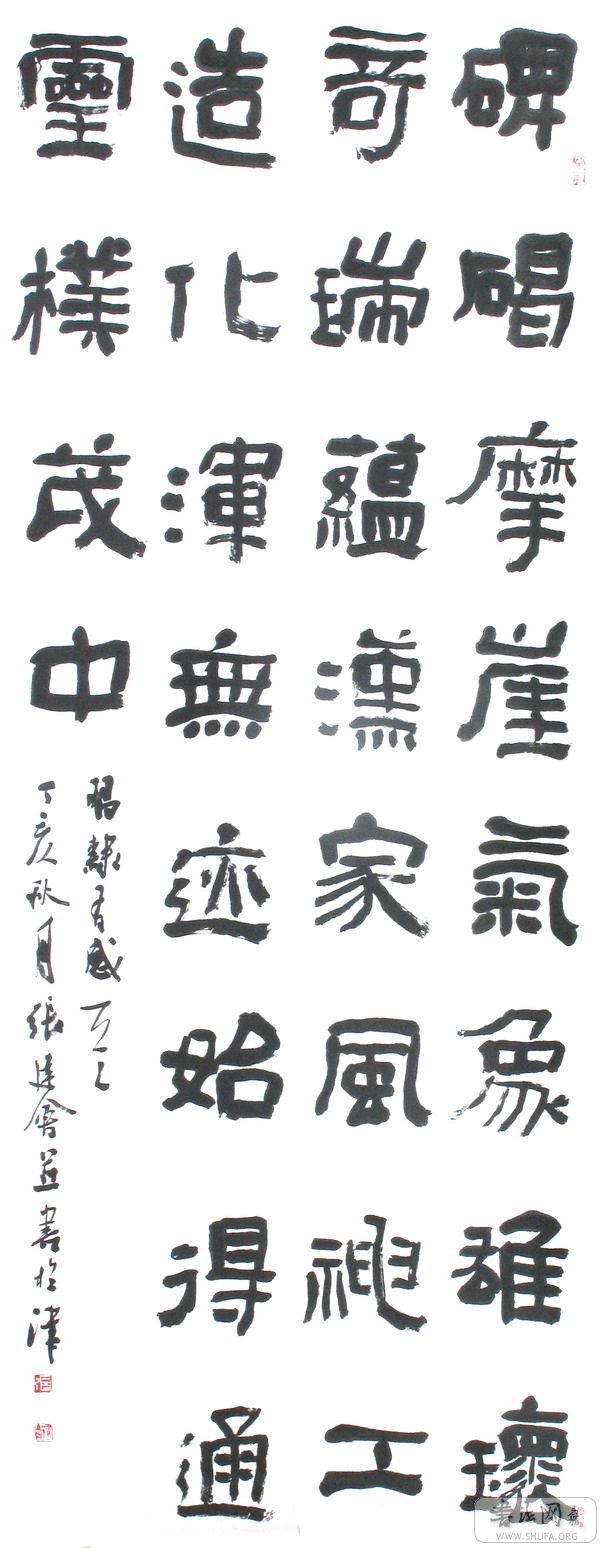 碑碣摩崖氣象雄瓌
奇瑞蘊漢家風神工
造化渾無迹始得通
靈樸茂中
習隸有感
丁亥秋月張建會並書於津
书法网
WWW.SHUFA.ORG